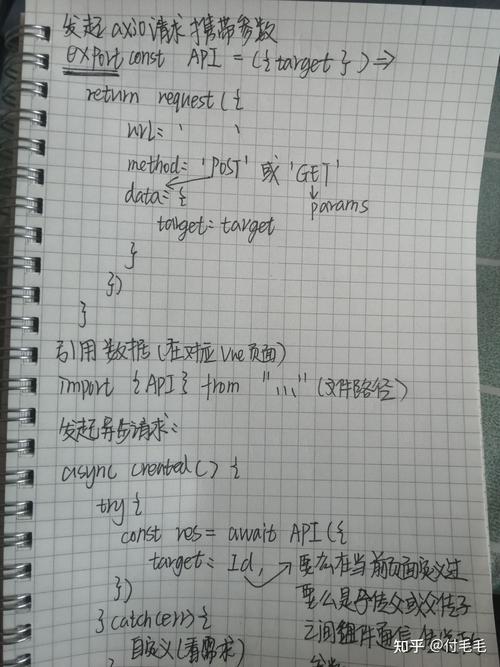 发起 axio请求 携带参数
export const API = ({target}) =>
return request({
url= ' '
method= 'POST' 或 'GET'
data= {
params
target= target
}
})
}
引用数据(在对应Vue页面)
import {API} from "...." (文件路径)
发起异步请求:
async created() {
try {
const res = await API({
target= Id, 要么在当前页面定义过
}) 要么是子传父或父传子
} catch(err) { 之间组件通信
自定义(看需求)
知乎 @付毛毛